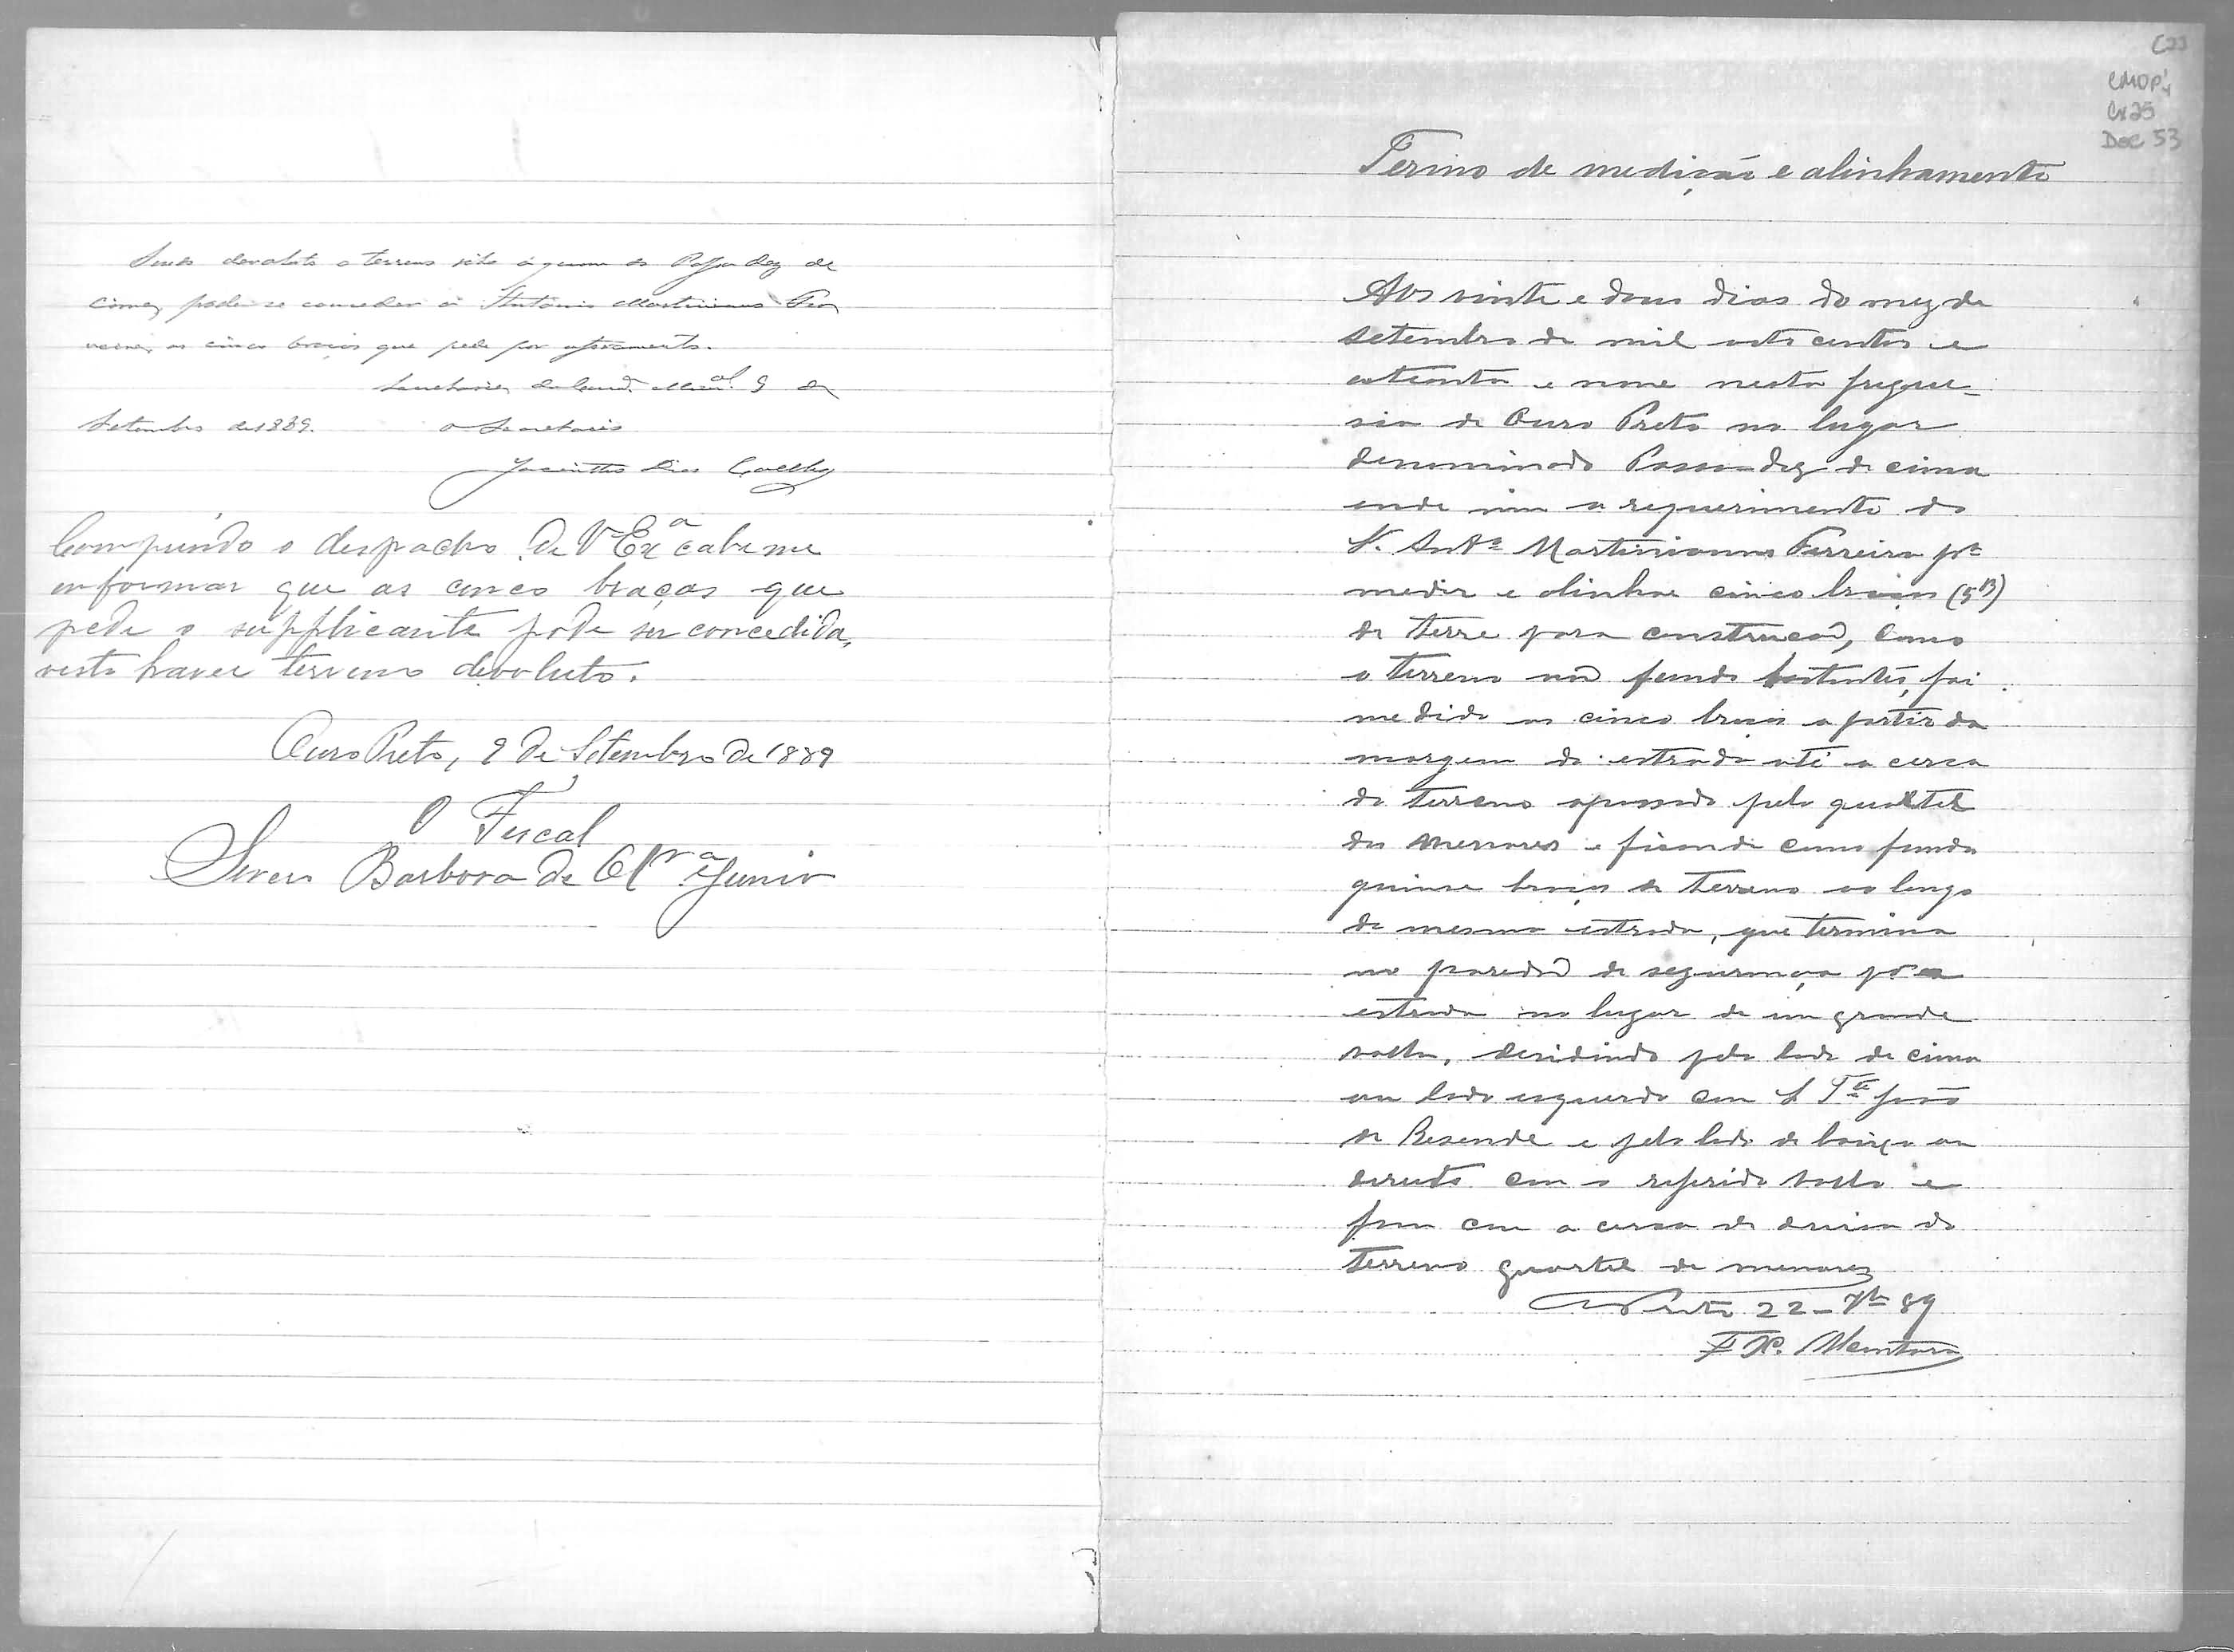 Sendo devoluto o terreno sito á
cima, pode-se conceder á Antonio Martiniano Fer
as cinco braças que pede por aforamento.
Secretaria da 9 de
Setembro de 1889. O Secretario
Jacintho Dias Coelho
Comprindo o despacho de V Exª cabe me
informar que as cinco braças que
pede o supplicante pode ser concedida,
visto haver terreno devoluto.
Ouro Preto, 9 de Setembro de 1889
O Fiscal
Barbosa de Olrª Junior
C23
CMOP
Cx 25
Doc 53
Termo de medição e alinhamento
Aos vinte e dous dias do mez de
setembro de mil oito centos e
oitenta e nove nesta fregue-
sia de Ouro Preto no lugar
denominado Passa dez de cima
onde vim a requerimento do
S. Antº Martiniano Ferreira pª
medir e alinhar cinco braças (5B)
de terre para construcão, Como
o terreno não fundo bastantes, foi
medido as cinco braças a partir da
margem da estrada até a cerca
do terreno apossado pelo quartel
dos menores e ficando como fundo
quinse braças de terreno ao longo
da mesma estrada, que termina
no paredão de segurança
estrada no lugar de um grande
volta, dividindo pelo lado de cima
ou lado esquerdo com S Tte João
de Resende e pelo lado de baixo ou
direito com a referida volta e
com a cerca de divisa do
terreno quartel de menores
22 - 7br 89
F X. Monteiro